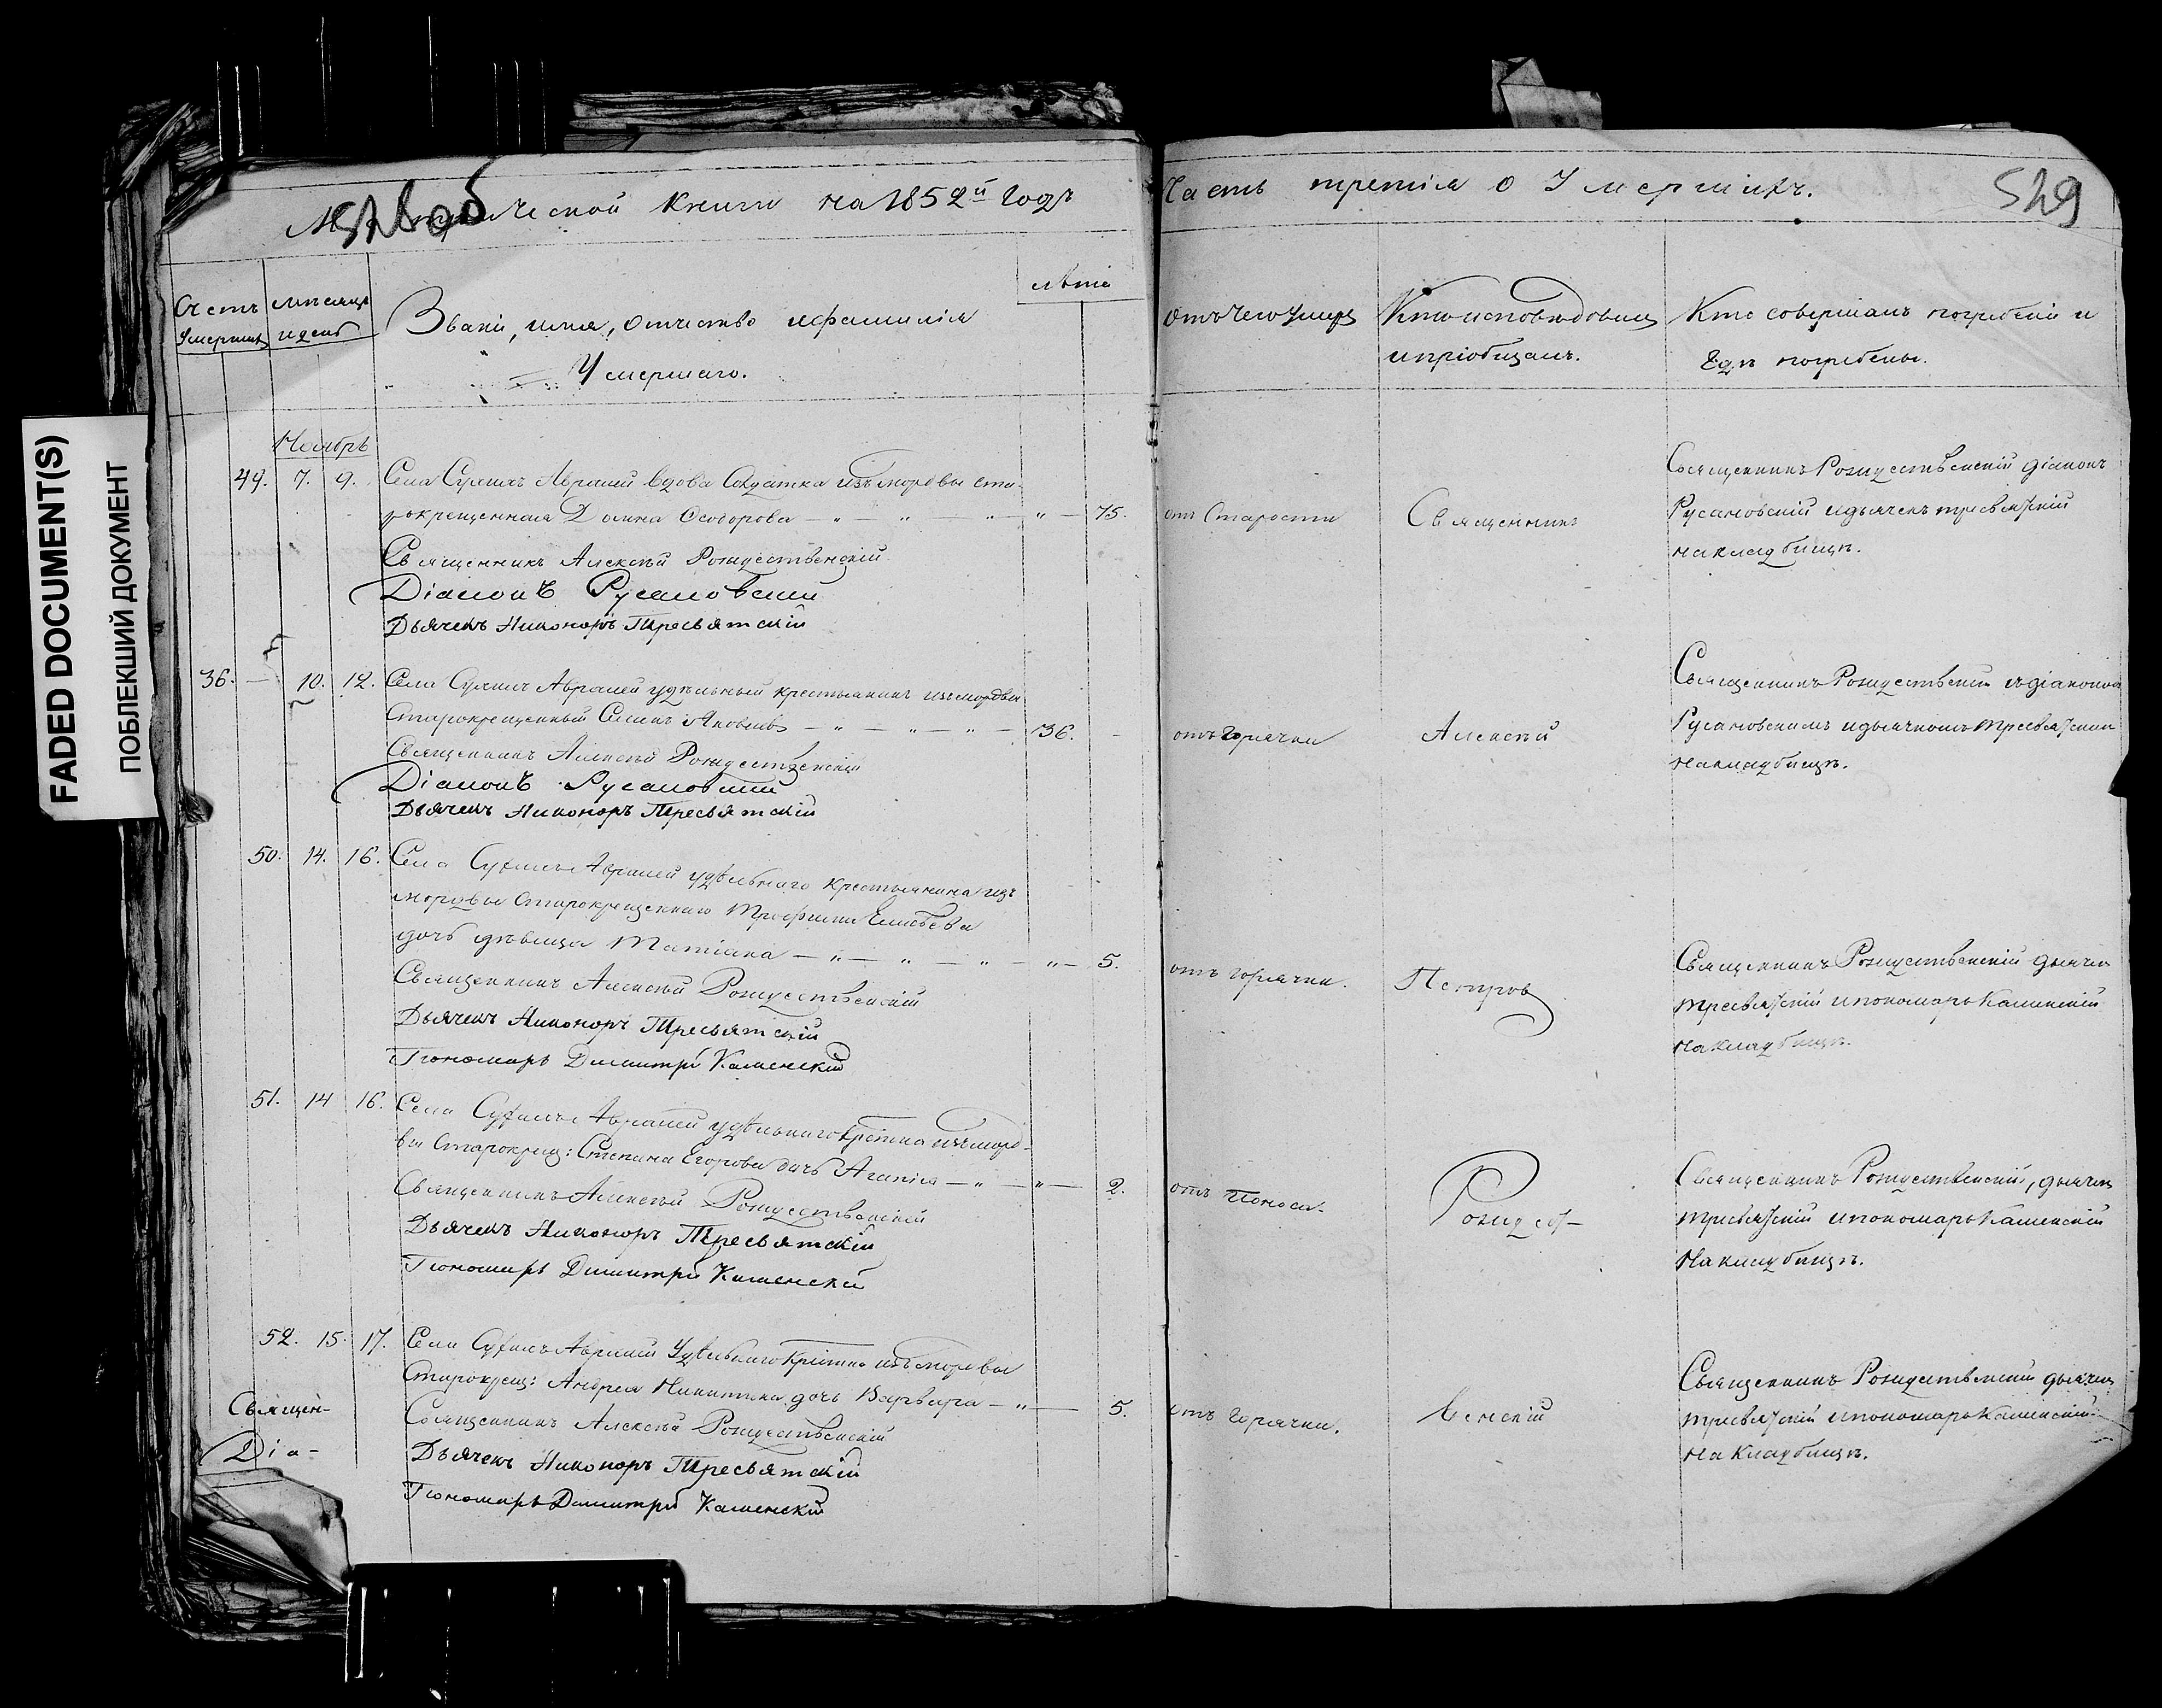 FADED DOCUMENT(S)
ПОБЛЕКШИЙ ДОКУМЕНТ
Метрической книги на 1852й Годъ
Часть третія о Умершихъ.
549
Счетъ Умершихъ
Мѣсяцъ и день
Званіе, имя, отчество и фамилія
Умершаго.
лѣта
отъ чего умеръ
Кто исповѣдовалъ
и пріобщалъ.
Кто совершалъ погребеніе и
гдѣ погребены.
Ноябрь
49. 7. 9. Села Авралей вдова Солдатка изъ мордвы ста-
рокрещенная Домна Ѳеодорова — „ — „ — „ — „ — 75.
отъ Старости
Священникъ
Священникъ Рождественскій діаконъ
Русановскій и дьячекъ Тресвятскій
на кладбищѣ.
Священникъ Алексѣй Рождественскій
Діаконъ Русановскій
Дьячекъ Никоноръ Тресвятскій
36. — 10. 12. Села Авралей удѣльный крестьянинъ изъ мордвы
Старокрещенный Семенъ Яковлевъ — „ — „ — „ — 36. -
отъ Горячки
Алексѣй
Священникъ Рождественскій съ діакономъ
Русановскимъ и дьячкомъ Тресвятскимъ
на кладбищѣ.
Священникъ Алексѣй Рождественскій
Діаконъ Русановскій
Дьячекъ Никоноръ Тресвятскій
50. 14. 16. Села Авралей удѣльнаго крестьянина изъ
мордвы Старокрещеннаго Трофима Елисѣева
дочь дѣвица Татіана — „ — „ — „ — „ — 5.
отъ горячки.
Петровъ
Священникъ Рождественскій дьячекъ
Тресвятскій и пономарь Каменскій
на кладбищѣ.
Священникъ Алексѣй Рождественскій
Дьячекъ Никоноръ Тресвятскій
Пономарь Димитрій Каменскій
51. 14 16. Села Авралей удѣльнаго крестьянина изъ морд-
вы Старокрещ: Степана Егорова дочь Агапія — „ — „ — 2.
отъ Поноса.
Рождест-
Священникъ Рождественскій, дьячекъ
Тресвятскій и пономарь Каменскій
На кладбищѣ.
Священникъ Алексѣй Рождественскій
Дьячекъ Никоноръ Тресвятскій
Пономарь Димитрій Каменскій
52. 15. 17. Села Авралей Удѣльнаго изъ мордвы
Старокрещ: Андрея Никитина дочь Варвара — „ — 5.
отъ Горячки.
венскій
Священникъ Рождественскій дьячекъ
Тресвятскій и пономарь Каменскій
на Кладбищѣ.
Священникъ Алексѣй Рождественскій
Дьячекъ Никоноръ Тресвятскій
Пономарь Димитрій Каменскій
Священ-
Діа-